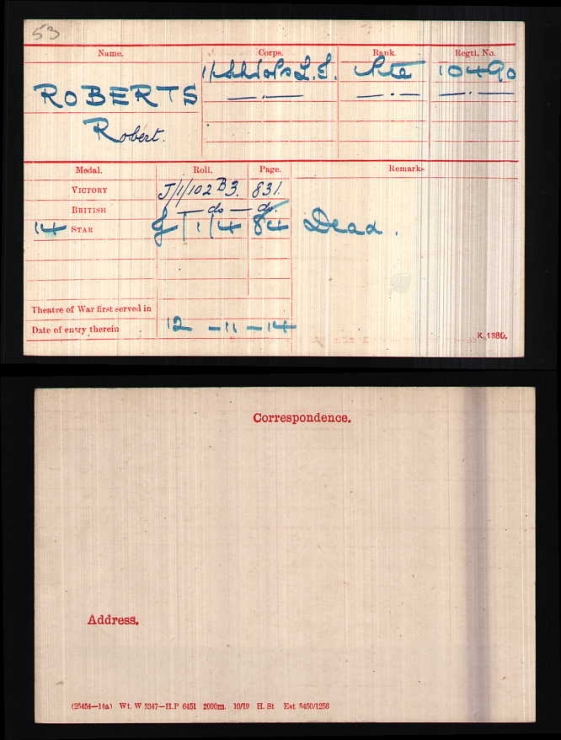 53
Name. Corps. Rank. Regtl. No.
ROBERTS L.I. Pte 10490
Robert.
Medal. Roll. Page. Remarks
VICTORY J/1/102 B3. 831.
BRITISH — do — do.
14 STAR J/1/4 84 Dead.
Theatre of War first served in
Date of entry therein 12 - 11 - 14
K. 1380.
Correspondence.
Address.
Wt. W 5047—H.P 6451 2000m. 10/19 H. St Est 5450/1256